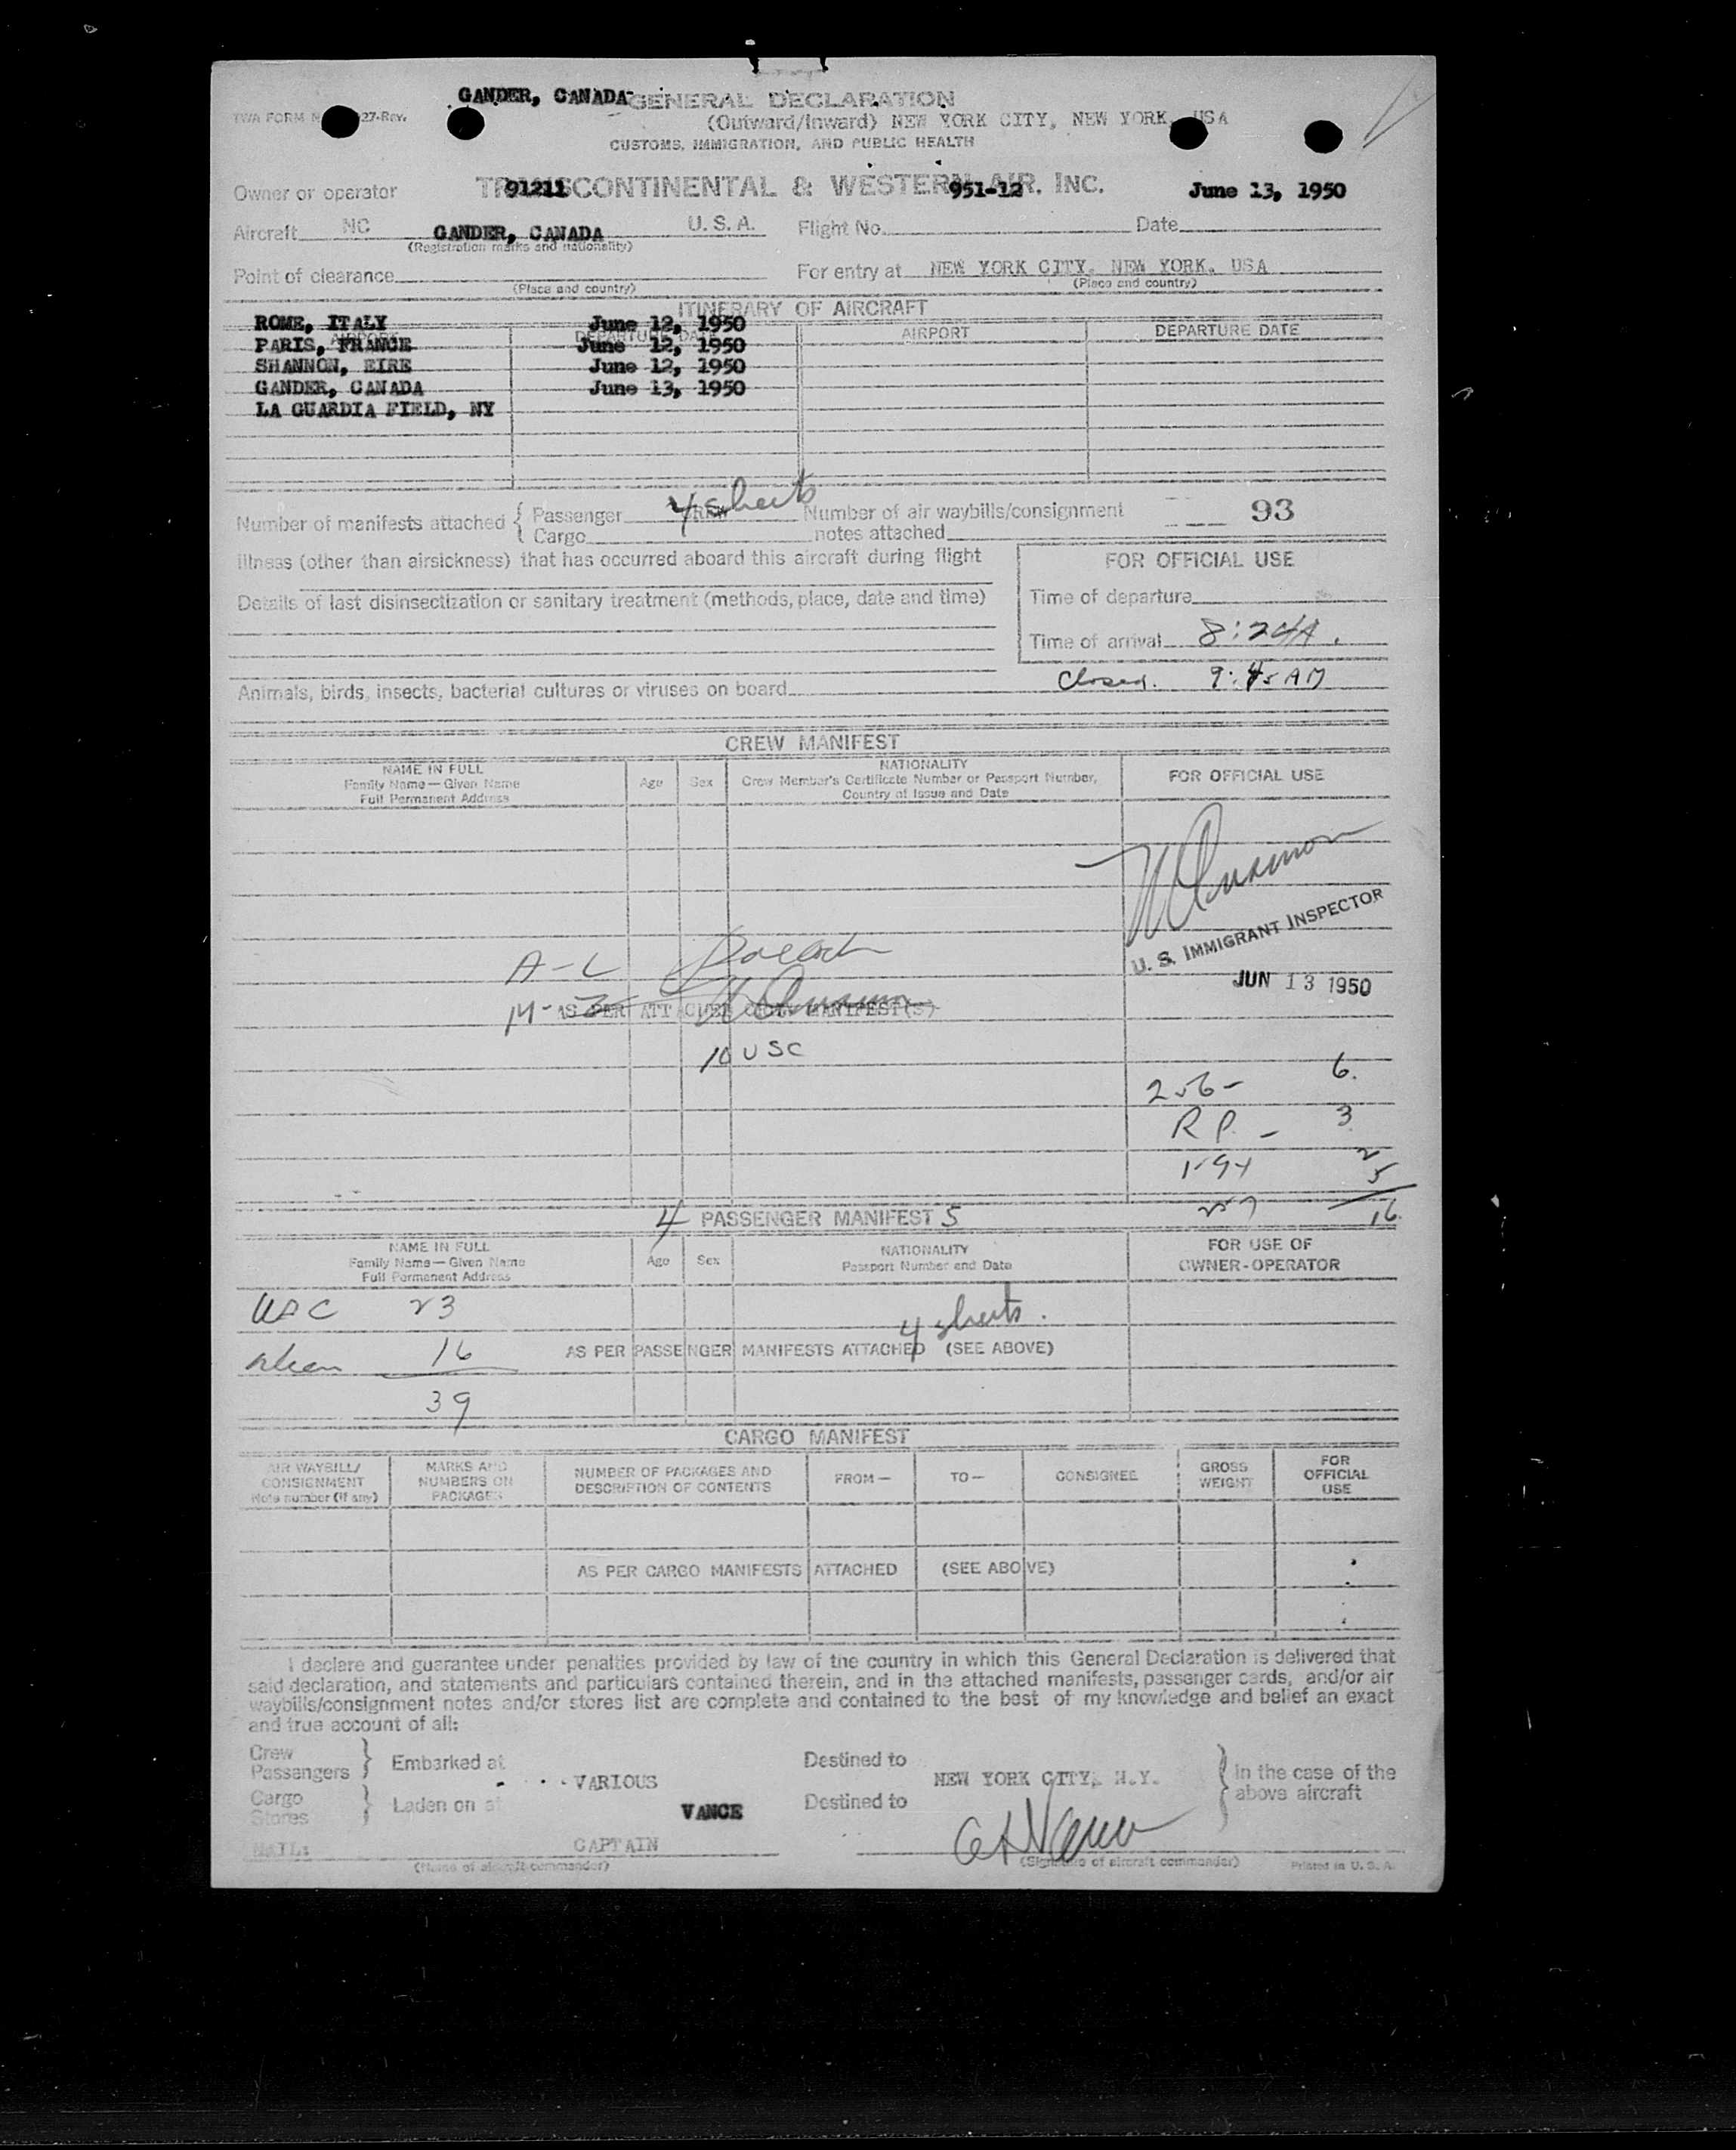 GANDER, CANADA GENERAL DECLARATION
TWA FORM 27-Rev.
(Outward/Inward) NEW YORK CITY, NEW YORK, USA
CUSTOMS, IMMIGRATION, AND PUBLIC HEALTH
Owner or operator TRANSCONTINENTAL & WESTERN AIR, INC.
91211 951-12 June 13, 1950
Aircraft NC U. S. A. Flight No. Date
GANDER, CANADA
(Registration marks and nationality)
Point of clearance For entry at NEW YORK CITY, NEW YORK, USA
(Place and country) (Place and country)
ITINERARY OF AIRCRAFT
AIRPORT DEPARTURE DATE AIRPORT DEPARTURE DATE
ROME, ITALY June 12, 1950
PARIS, FRANCE June 12, 1950
SHANNON, EIRE June 12, 1950
GANDER, CANADA June 13, 1950
LA GUARDIA FIELD, NY
4 sheets
Number of manifests attached { Passenger CREW Number of air waybills/consignment 93
Cargo notes attached
Illness (other than airsickness) that has occurred aboard this aircraft during flight
FOR OFFICIAL USE
Details of last disinsectization or sanitary treatment (methods, place, date and time)
Time of departure
Time of arrival 8:24A.
Closed. 9:45 AM
Animals, birds, insects, bacterial cultures or viruses on board
CREW MANIFEST
NAME IN FULL
Family Name—Given Name
Full Permanent Address
Age Sex
NATIONALITY
Crew Member's Certificate Number or Passport Number,
Country of Issue and Date
FOR OFFICIAL USE
U. S. IMMIGRANT INSPECTOR
JUN 13 1950
A-L
M-Z
AS PER ATTACHED CREW MANIFEST(S)
10 USC
256- 6.
R P. - 3
I-94 2
257 5
16
4 PASSENGER MANIFEST 5
NAME IN FULL
Family Name—Given Name
Full Permanent Address
Age Sex
NATIONALITY
Passport Number and Date
FOR USE OF
OWNER-OPERATOR
USC 23
4 sheets.
Alien 16
AS PER PASSENGER MANIFESTS ATTACHED (SEE ABOVE)
39
CARGO MANIFEST
AIR WAYBILL/
CONSIGNMENT
Note number (if any)
MARKS AND
NUMBERS ON
PACKAGES
NUMBER OF PACKAGES AND
DESCRIPTION OF CONTENTS
FROM—
TO—
CONSIGNEE
GROSS
WEIGHT
FOR
OFFICIAL
USE
AS PER CARGO MANIFESTS ATTACHED (SEE ABOVE)
I declare and guarantee under penalties provided by law of the country in which this General Declaration is delivered that
said declaration, and statements and particulars contained therein, and in the attached manifests, passenger cards, and/or air
waybills/consignment notes and/or stores list are complete and contained to the best of my knowledge and belief an exact
and true account of all:
Crew
Passengers } Embarked at Destined to
VARIOUS NEW YORK CITY, N.Y. } in the case of the
above aircraft
Cargo
Stores } Laden on at Destined to
VANCE
MAIL: CAPTAIN
(Name of aircraft commander) (Signature of aircraft commander) Printed in U. S. A.